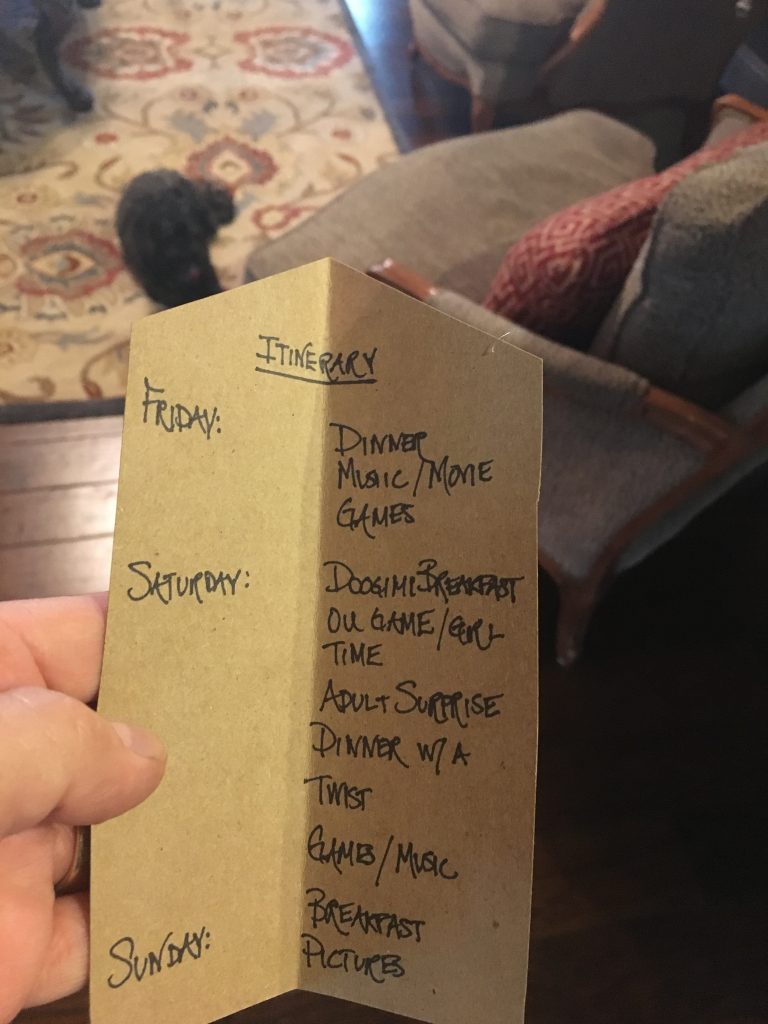 ITINERARY
FRIDAY:
DINNER
MUSIC/MOVIE
GAMES
SATURDAY:
DOOGIMI BREAKFAST
OU GAME/GIRL
TIME
ADULT SURPRISE
DINNER W/ A
TWIST
GAMES/MUSIC
SUNDAY:
BREAKFAST
PICTURES